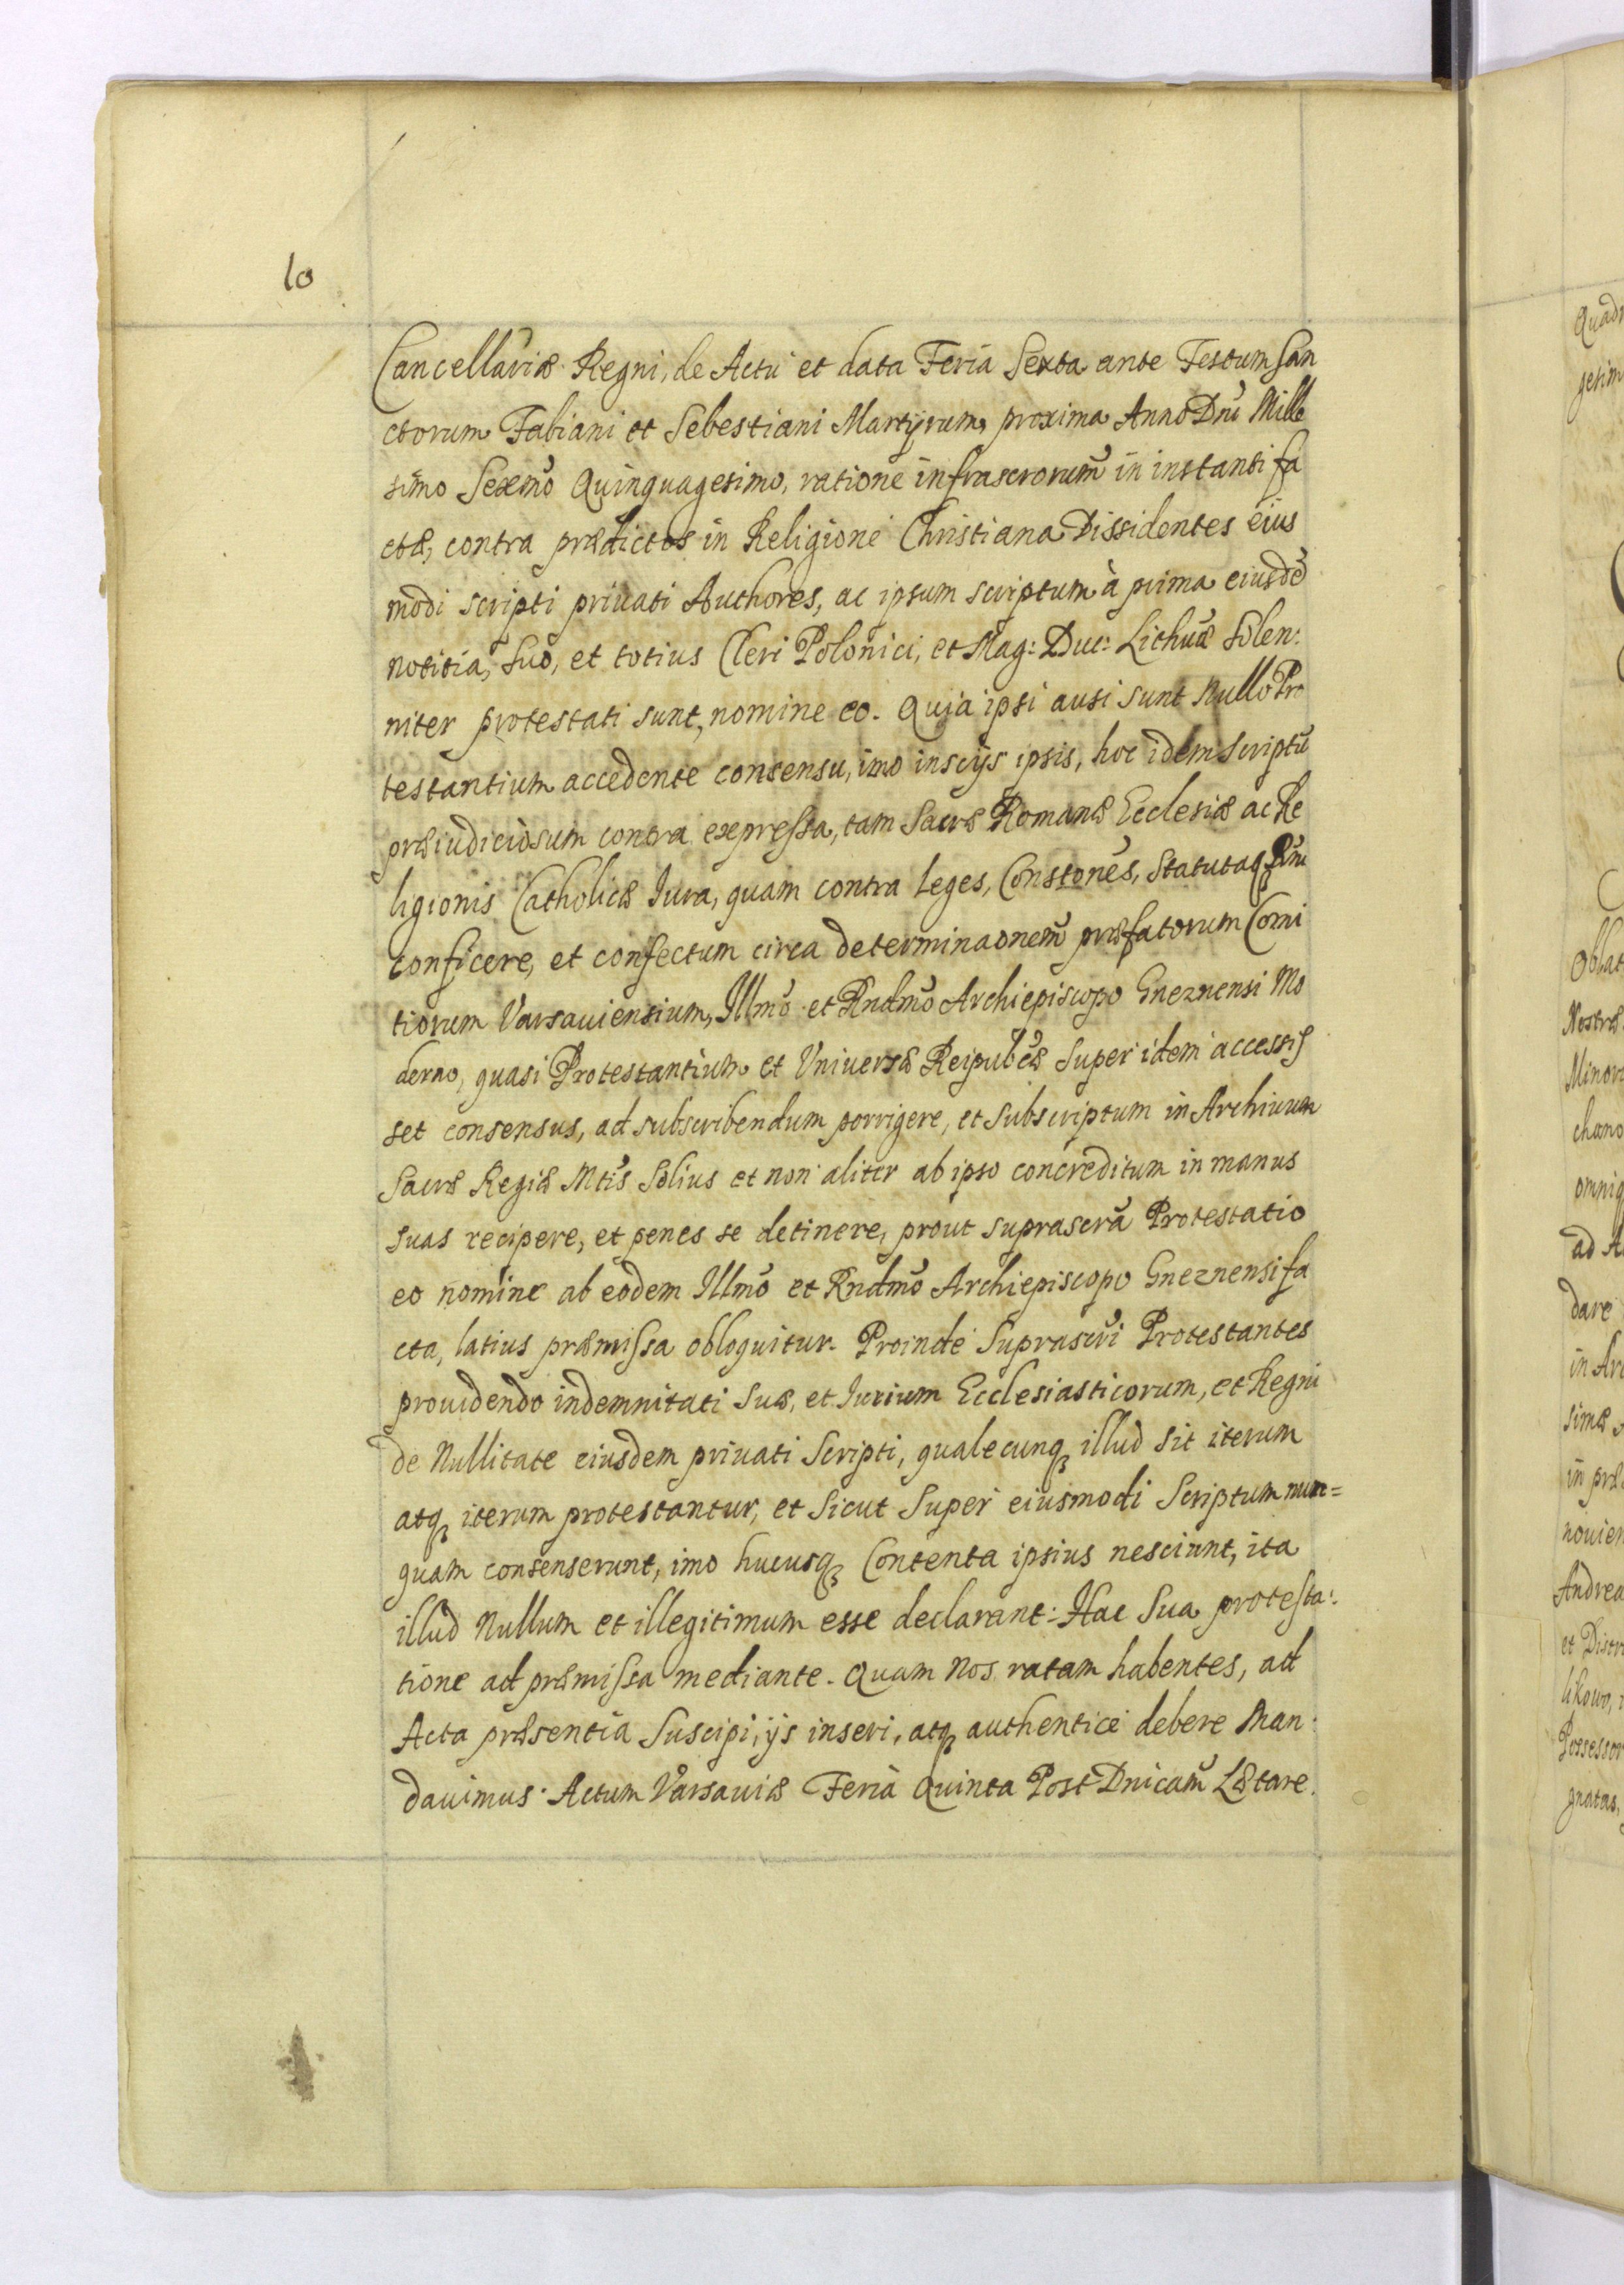 10
Cancellariæ Regni, de Actu et data Feria Sexta ante Festum San
ctorum Fabiani et Sebestiani Martyrum, proxima Anno Dni Mille
simo Sexmo Quinquagesimo, ratione infrascrorum in instanti fa
ctæ, contra prædictos in Religione Christiana Dissidentes eius
modi scripti priuati Authores, ac ipsum scriptum à prima eiusdē
notitia, suo, et totius Cleri Polonici, et Mag: Duc: Lithuæ Solen:
niter protestati sunt, nomine eo. Quia ipsi ausi sunt nullo Pro
testantium accedente consensu, imo inscijs ipsis, hoc idem scriptū
præiudiciosum contra expressa, tam Sacræ Romanæ Ecclesiæ ac Re
ligionis Catholicæ Iura, quam contra leges, Constones, Statutaq Rni
conficere, et confectum circa determinaonem præfatorum Comi
tiorum Varsauiensium, Illmo et Rndmo Archiepiscopo Gneznensi Mo
derno, quasi Protestantium et Vniversæ Reipubcæ super idem accessis
set consensus, ad subscribendum porrigere, et subscriptum in Archiuum
Sacræ Regiæ Mtis Solius et non aliter ab ipso concreditum in manus
suas recipere, et penes se detinere, prout suprascra Protestatio
eo nomine ab eodem Illmo et Rndmo Archiepiscopo Gneznensi fa
cta, latius præmissa obloquitur. Proinde Suprascri Protestantes
prouidendo indemnitati suæ, et Iurium Ecclesiasticorum, et Regni
de Nullitate eiusdem priuati Scripti, qualecunq illud sit iterum
atq iterum protestantur, et sicut super eiusmodi Scriptum nun=
quam consenserunt, imo hucusq Contenta ipsius nesciunt, ita
illud Nullum et illegitimum esse declarant: Hac Sua protesta:
tione ad præmissa mediante. Quam Nos ratam habentes, ad
Acta præsentia Suscipi, ijs inseri, atq authentice debere Man:
dauimus. Actum Varsauiæ Feria Quinta Post Dnicam Lætare.
Quadr
gesim
Oblat
Nostræ
Minori
omniq
ad A
dare
in Ar
simæ
in præ
nouien
Andrea
et Distr
Possessor
gnatas,